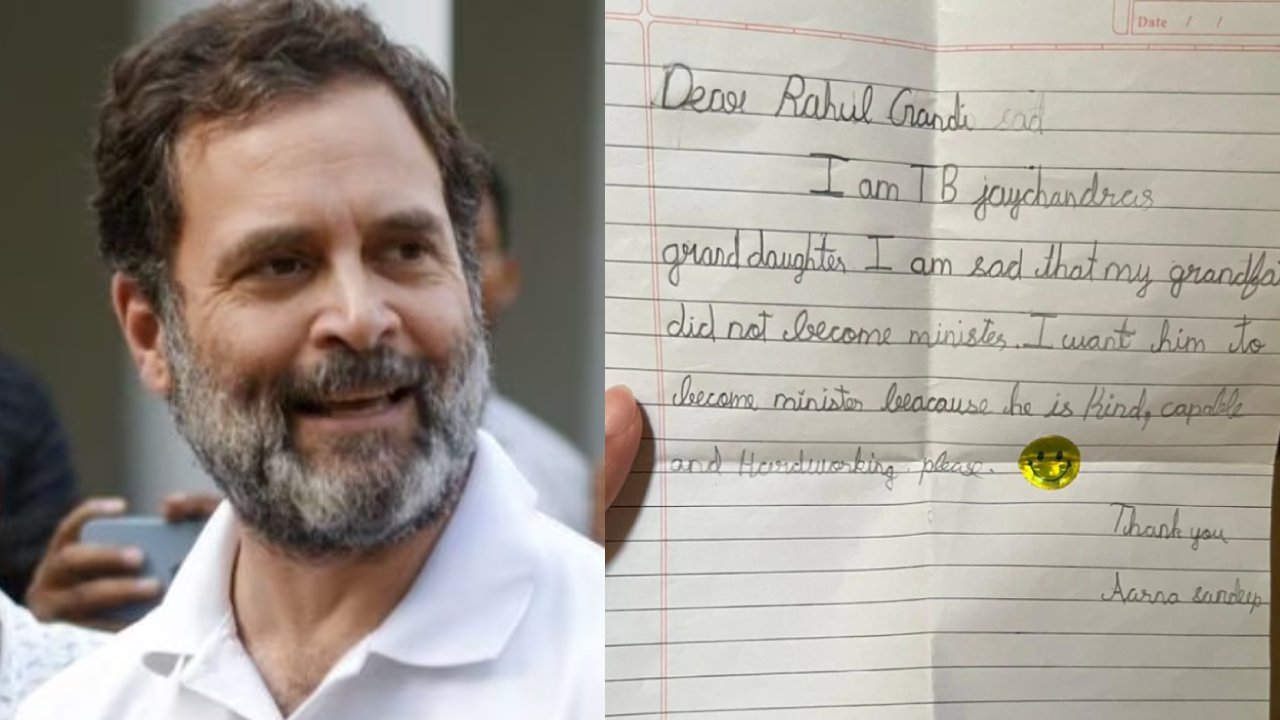 Date / /
Dear Rahul Gandi sad
I am TB jaychandras
granddaughter I am sad that my grandfa
did not become minister. I want him to
become minister beacause he is kind, capable
and Hardworking please.
Thank you
Aarna sandeep